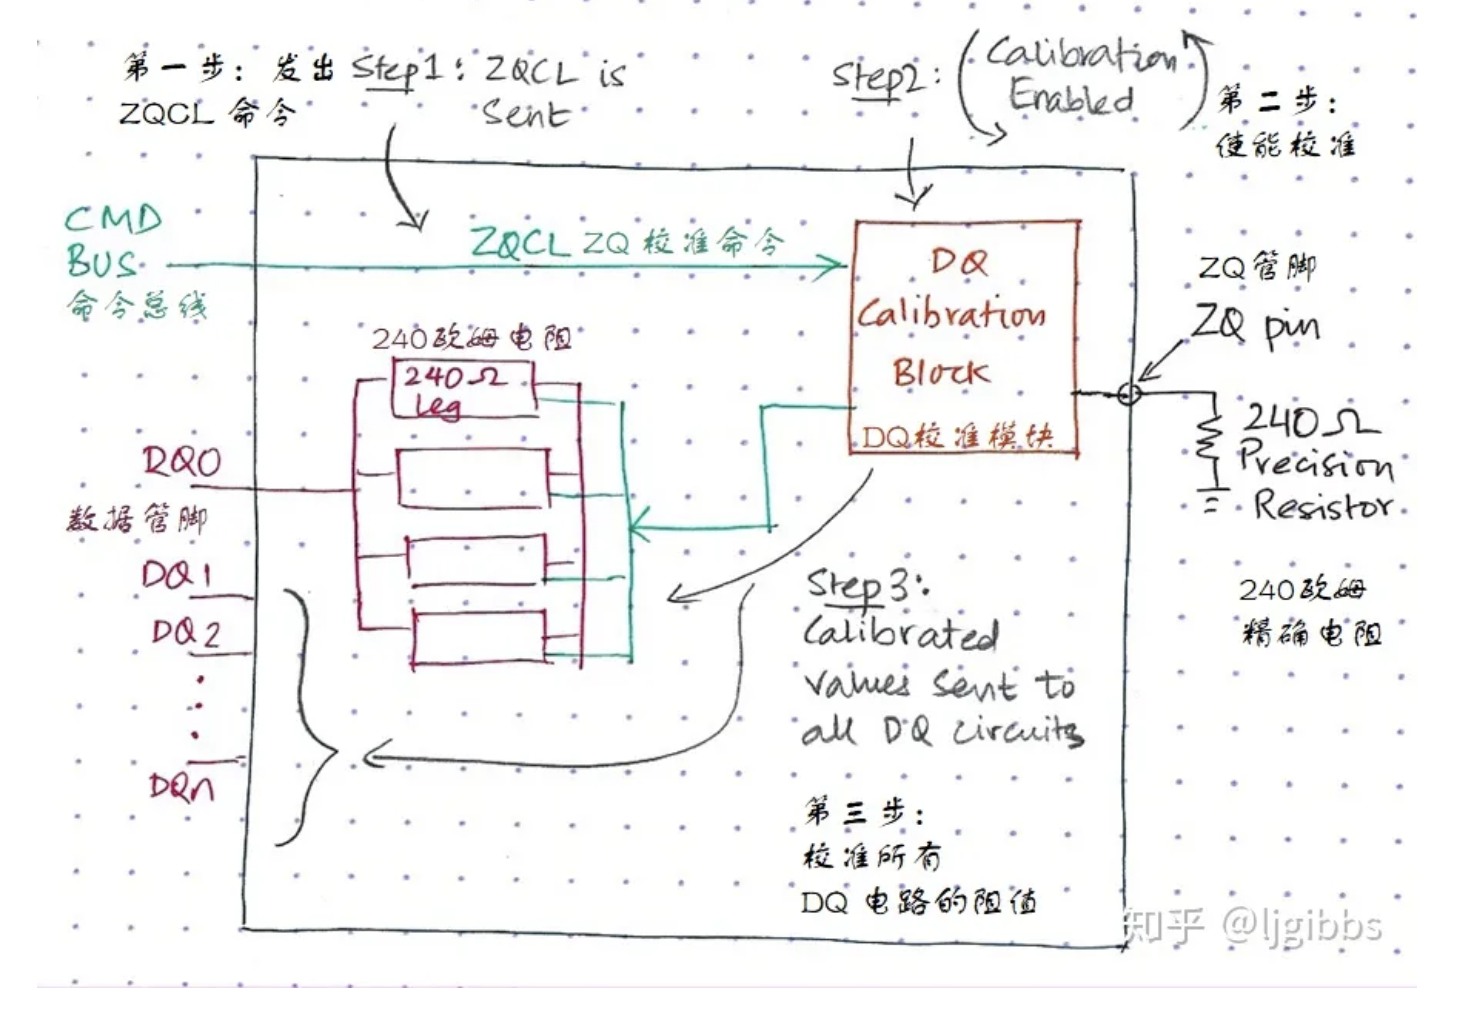 第一步：发出
ZQCL 命令
Step1: ZQCL is
Sent
Step2:
Calibration
Enabled
第二步：
使能校准
CMD
BUS
命令总线
ZQCL ZQ 校准命令
DQ
Calibration
Block
DQ校准模块
ZQ管脚
ZQ pin
240Ω
Precision
Resistor
240欧姆
精确电阻
240欧姆电阻
240Ω
Leg
DQ0
数据管脚
DQ1
DQ2
DQn
Step3:
Calibrated
values sent to
all DQ circuits
第三步：
校准所有
DQ 电路的阻值
知乎 @ljgibbs